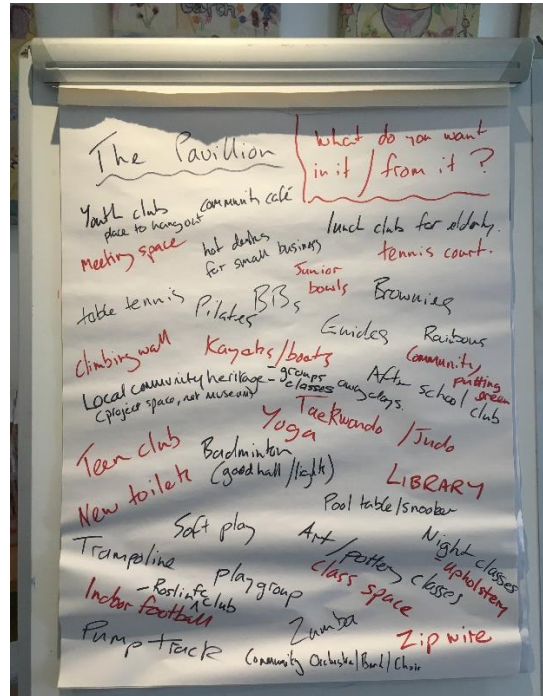 The Pavillion
What do you want
in it / from it ?
Youth club
place to hang out
community café
lunch club for elderly.
Meeting space
hot desks
for small business
tennis court.
table tennis
Pilates
BBs
Junior
bowls
Brownies
Guides
Rainbows
climbing wall
Kayaks/boats
Community
putting
green
Local community heritage - groups
classes awaydays.
(project space, not museum)
After school club
Taekwondo / Judo
Yoga
Teen club
Badminton
(good hall / light)
LIBRARY
New toilets
Pool table/snooker
Soft play
Art / pottery classes
class space
Night classes
- upholstery
Trampoline
playgroup
Indoor football
club
Pump track
Zumba
Zip wire
Community Orchestra/Band/Choir